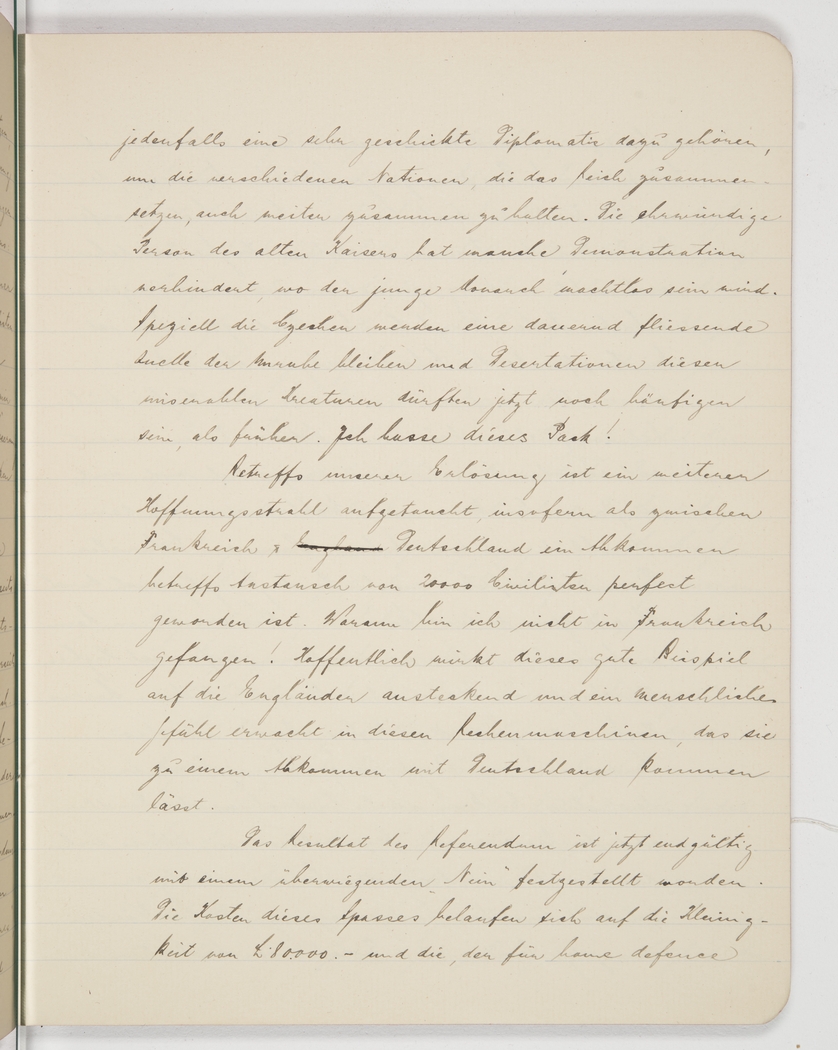 jedenfalls eine sehr geschickte Diplomatie dazu gehören,
um die verschiedenen Nationen, die das Reich zusammen-
setzen, auch weiter zusammen zu halten. Die ehrwürdige
Person des alten Kaisers hat manche Demonstration
verhindert, wo der junge Monarch machtlos sein wird.
Speziell die Czechen werden eine dauernd fliessende
Quelle der Unruhe bleiben und Desertationen dieser
miserablen Kreaturen dürften jetzt noch häufiger
sein, als früher. Ich hasse dieses Pack!
Betreffs unserer Erlösung ist ein weiterer
Hoffnungsstrahl aufgetaucht, insofern als zwischen
Frankreich & England Deutschland ein Abkommen
betreffs Austausch von 20000 Civilisten perfekt
geworden ist. Warum bin ich nicht in Frankreich
gefangen! Hoffentlich wirkt dieses gute Beispiel
auf die Engländer ansteckend und ein menschliches
Gefühl erwacht in diesen Rechenmaschinen, das sie
zu einem Abkommen mit Deutschland kommen
lässt.
Das Resultat des Referendum ist jetzt endgültig
mit einem überwiegenden "Nein" festgestellt worden.
Die Kosten dieses Spasses belaufen sich auf die Kleinig-
keit von £ 80.000.- und die, der für home defence